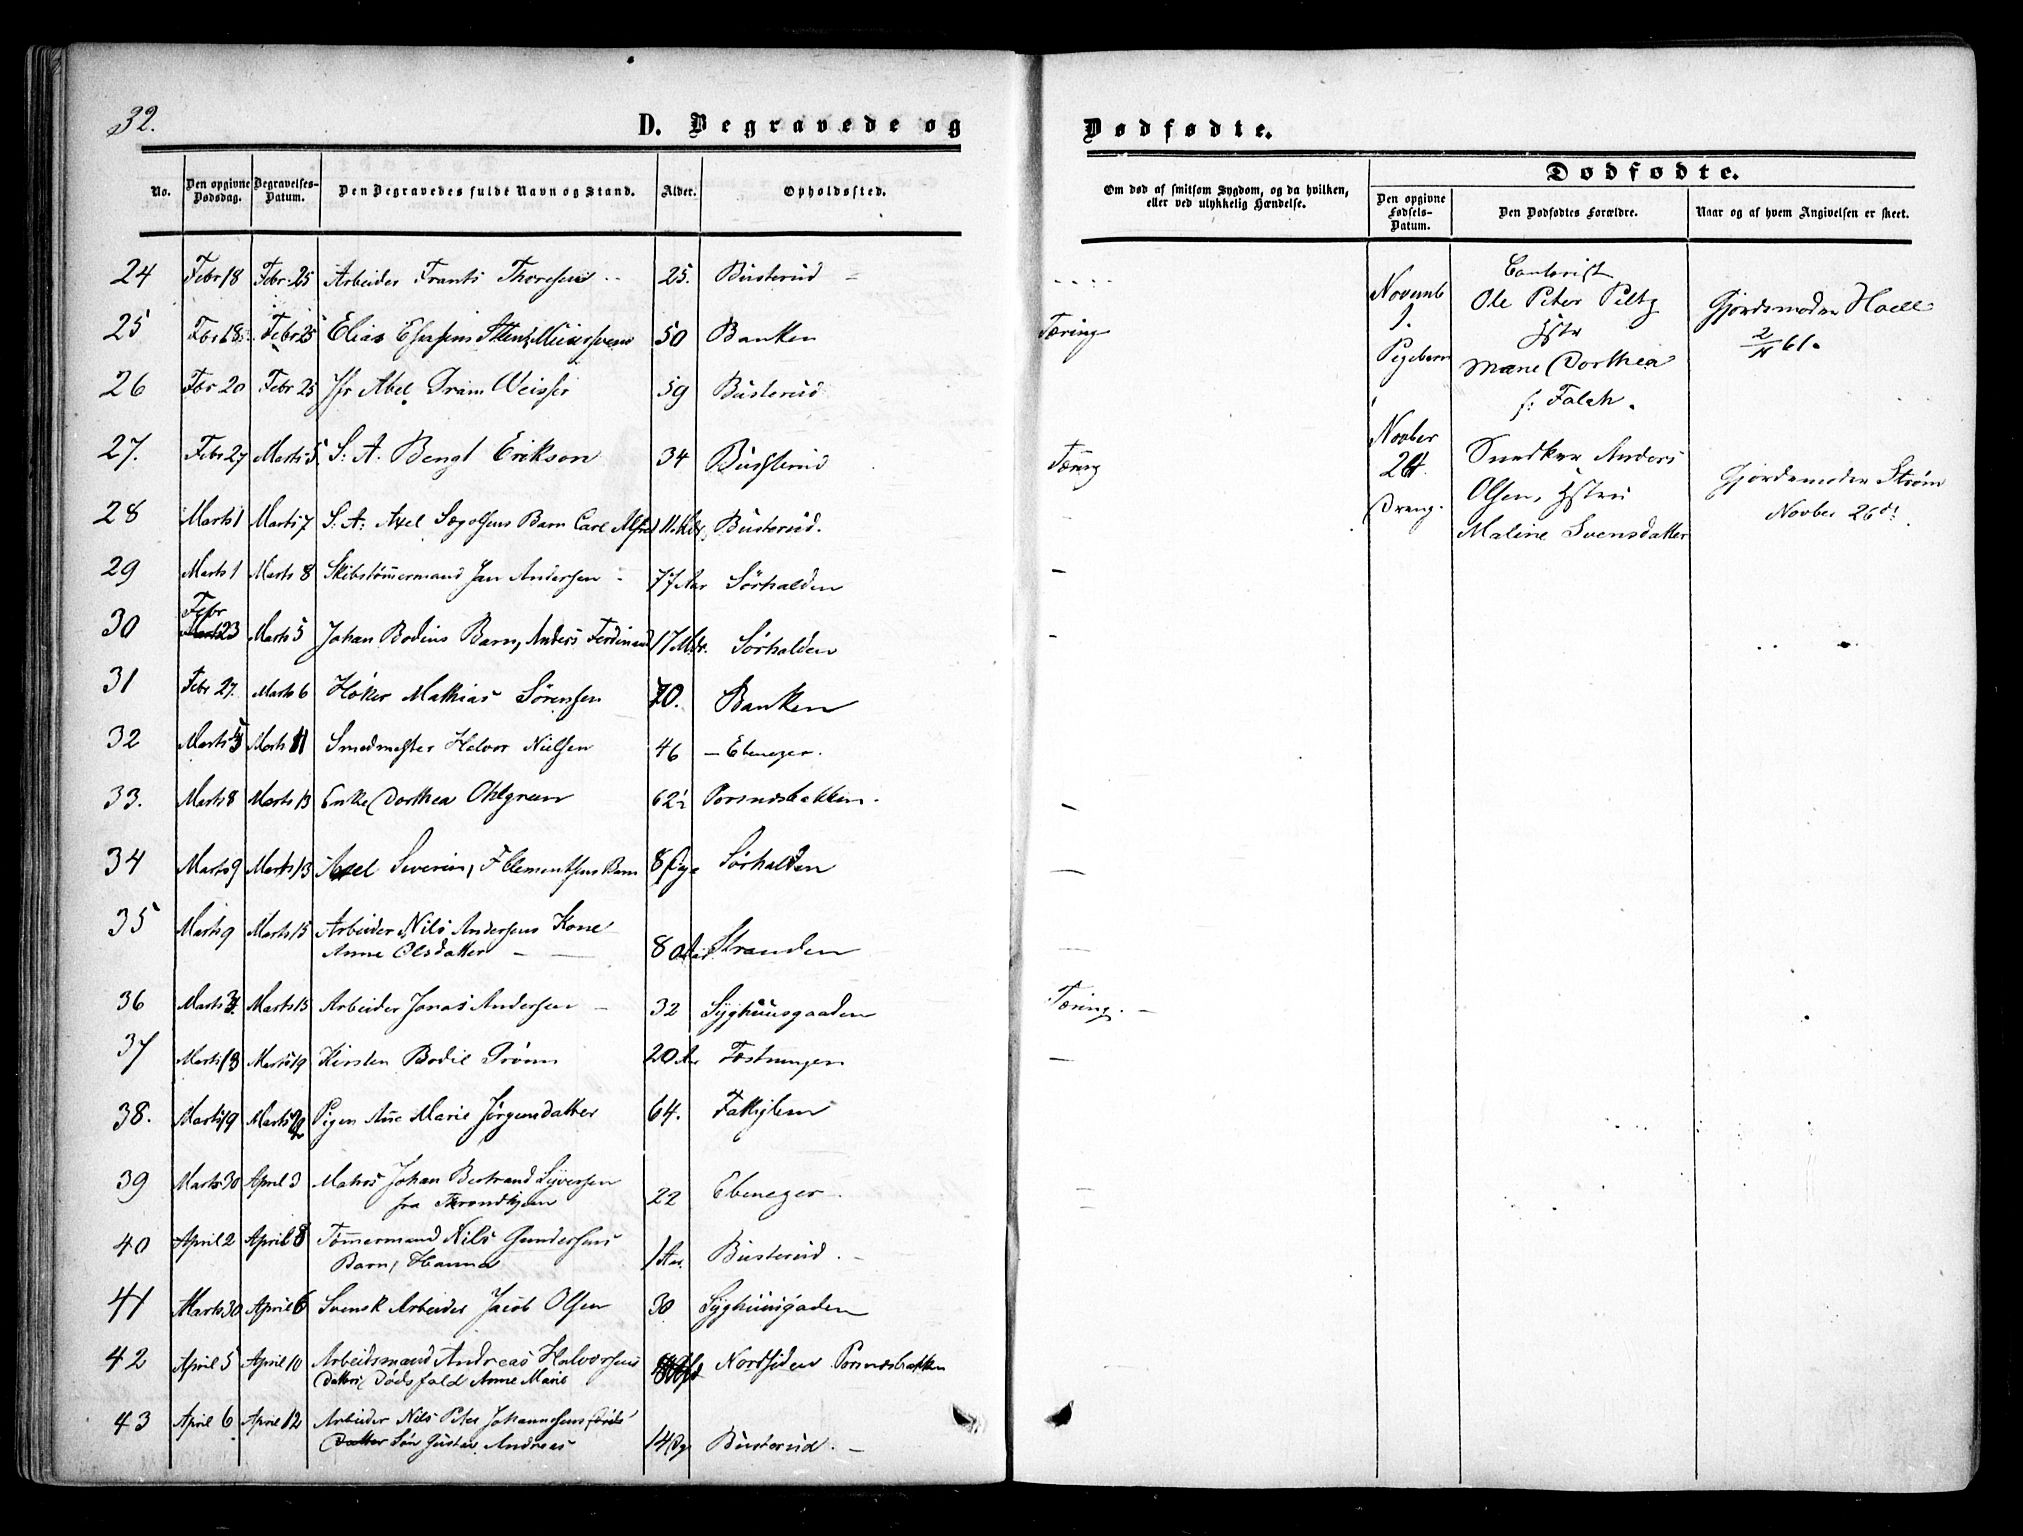 32.
D. Begravede og
Dødfødte.
No.
Den opgivne Dødsdag.
Begravelses-Datum.
Den Begravedes fulde Navn og Stand.
Alder.
Opholdssted.
Om død af smitsom Sygdom, og da hvilken, eller ved ulykkelig Hændelse.
Dødfødte.
Den opgivne Fødsels-Datum.
Den Dødfødtes Forældre.
Naar og af hvem Angivelsen er skeet.
24 Febr 18 Febr 25 Arbeider Frants Thoresen 25. Busterud
25 Fbr 18 Febr 25 Elias 50 Banken Tæring
26 Fbr 20 Febr 25 Abel Weisser 59 Busterud
27. Febr 27 Marts 5 S. A. Bengt Erikson 34 Busterud Tæring
28 Marts 1 Marts 7 S. A. Axel Barn Carl Alfred 11 Mdr. Busterud.
29 Marts 1 Marts 8 Skibstømmermand Jan Andersen 77 Aar Sørhalden
30 Febr 23 Marts 5 Johan Bodins Barn, Anders Ferdinand 17 Mdr. Sørhalden
31 Febr 27. Marts 6 Høker Mathias Sørensen 70. Banken
32 Marts Marts 11 Smedmester Halvor Nielsen 46 – Ebenezer.
33. Marts 8 Marts 13 Enke Dorthea Ohlgreen 62 Porsnesbakken.
34 Marts 9 Marts 13 Axel Severin, F Clementsens Barn 8 Dge Sørhalden
35 Marts 9 Marts 15 Arbeider Nils Andersens Kone
Anne Olsdatter 80 Aar Stranden
36 Marts Marts 15 Arbeider Jonas Andersen 32 Syghuusgaaden Tæring.
37 Marts 18 Marts 19 Kirsten Bodil 20 Aar Fæstningen
38. Marts 19 Marts Pigen Ane Marie Jørgensdatter 64.
39 Marts 30 April 3 Matros Johan Bertrand Syversen
fra Throndhjem 22 Ebenezer.
40 April 2 April 8 Tømmermand Nils Gundersens
Barn, Hanna 1 Aar. Busterud.
41 Marts 30 April 6 Svensk Arbeider Jacob Olsen 30 Syghuusgaden
42 April 5 April 10 Arbeidsmand Andreas Halvorsens
Datter Anne Marie Nordsiden Porsnesbakken
43 April 6 April 12 Arbeider Nils Peter Johannesens
Datter Søn Gustav Andreas 14 Dg Busterud.
Novemb
1.
Pigebarn
Contorist
Ole Peter Piltz
Hstr
Maren Dorthea
f. Falch.
Gjordemoder Hoell
2/11 61.
Novber
26
Dreng.
Snedker Anders
Olsen, Hstru
Maline Svensdatter
Gjordemoder Strøm
Novber 26d.